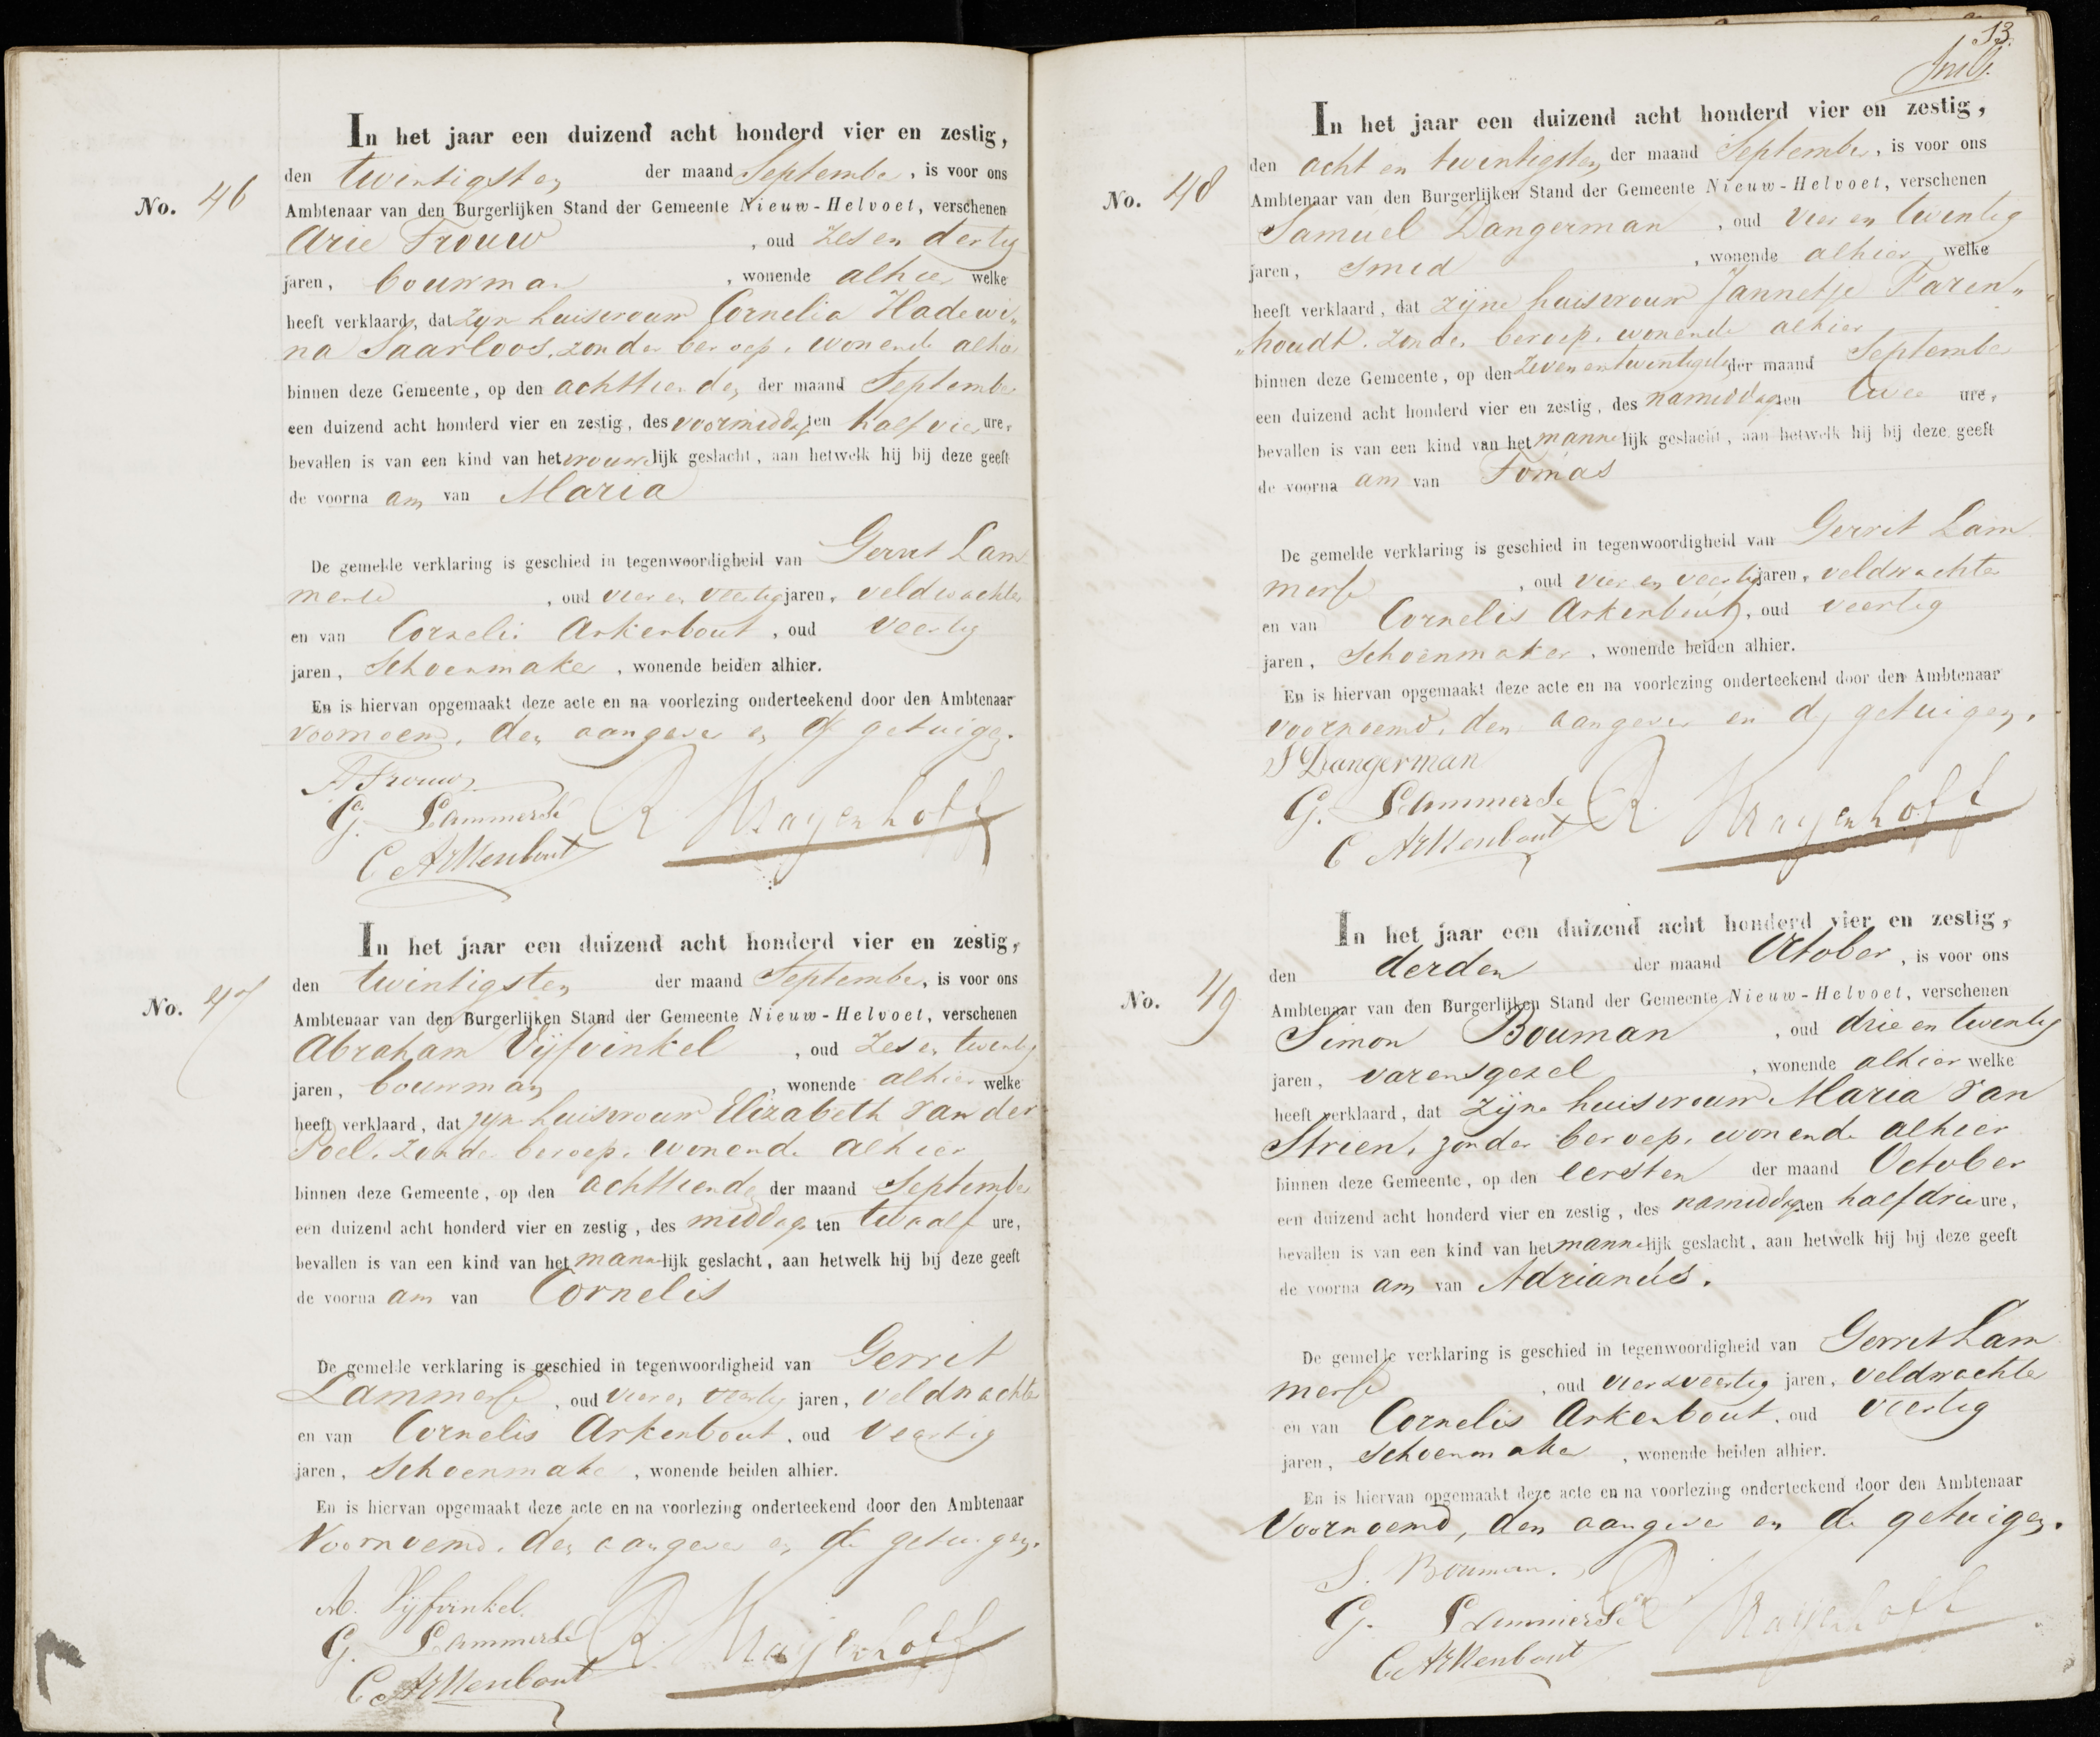 In het jaar een duizend acht honderd vier en zestig,
den twintigsten der maand September, is voor ons
No. 46
Ambtenaar van den Burgerlijken Stand der Gemeente Nieuw-Helvoet, verschenen
Arie Trouw, oud Zes en dertig
jaren, bouwman, wonende alhier welke
heeft verklaard, dat zyn huisvrouw Cornelia Hadewi„
na Saarloos, zonder beroep, wonende alhier
binnen deze Gemeente, op den achttienden der maand September
een duizend acht honderd vier en zestig, des voormiddags ten half vier ure,
bevallen is van een kind van het vrouwelijk geslacht, aan hetwelk hij bij deze geeft
de voorna am van Maria
De gemelde verklaring is geschied in tegenwoordigheid van Gerrit Lam
merse, oud vier en veertig jaren, veldwachter
en van Cornelis Arkenbout, oud veertig
jaren, Schoenmaker, wonende beiden alhier.
En is hiervan opgemaakt deze acte en na voorlezing onderteekend door den Ambtenaar
voornoemd, den aangever en de getuigen.
A Trouw
G. Lammerse R. Kraijenhoff
C Arkenbout
In het jaar een duizend acht honderd vier en zestig,
den twintigsten der maand September, is voor ons
No. 47
Ambtenaar van den Burgerlijken Stand der Gemeente Nieuw-Helvoet, verschenen
Abraham Vijfvinkel, oud Zes en twintig
jaren, bouwman, wonende alhier welke
heeft verklaard, dat zyn huisvrouw Elizabeth van der
Poel, zonder beroep, wonende alhier
binnen deze Gemeente, op den achttienden der maand September
een duizend acht honderd vier en zestig, des middags ten twaalf ure,
bevallen is van een kind van het mannelijk geslacht, aan hetwelk hij bij deze geeft
de voorna am van Cornelis
De gemelde verklaring is geschied in tegenwoordigheid van Gerrit
Lammerse, oud vier en veertig jaren, veldwachter
en van Cornelis Arkenbout, oud veertig
jaren, Schoenmaker, wonende beiden alhier.
En is hiervan opgemaakt deze acte en na voorlezing onderteekend door den Ambtenaar
Voornoemd, den aangever en de getuigen.
A. Vijfvinkel
G. Lammerse R. Kraijenhoff
C Arkenbout
13.
In het jaar een duizend acht honderd vier en zestig,
den acht en twintigsten der maand September, is voor ons
No. 48
Ambtenaar van den Burgerlijken Stand der Gemeente Nieuw-Helvoet, verschenen
Samuel Dangerman, oud vier en twintig
jaren, smid, wonende alhier welke
heeft verklaard, dat zijne huisvrouw Jannetje Faren„
„houdt, zonder beroep, wonende alhier
binnen deze Gemeente, op den zeven en twintigsten der maand September
een duizend acht honderd vier en zestig, des namiddags ten twee ure,
bevallen is van een kind van het mannelijk geslacht, aan hetwelk hij bij deze geeft
de voorna am van Tomas
De gemelde verklaring is geschied in tegenwoordigheid van Gerrit Lam
merse, oud vier en veertig jaren, veldwachter
en van Cornelis Arkenbout, oud veertig
jaren, Schoenmaker, wonende beiden alhier.
En is hiervan opgemaakt deze acte en na voorlezing onderteekend door den Ambtenaar
voornoemd, den aangever en de getuigen.
S Dangerman
G. Lammerse R. Kraijenhoff
C Arkenbout
In het jaar een duizend acht honderd vier en zestig,
den derden der maand October, is voor ons
No. 49
Ambtenaar van den Burgerlijken Stand der Gemeente Nieuw-Helvoet, verschenen
Simon Bouman, oud drie en twintig
jaren, varensgezel, wonende alhier welke
heeft verklaard, dat zijne huisvrouw Maria van
Strien, zonder beroep, wonende alhier
binnen deze Gemeente, op den eersten der maand October
een duizend acht honderd vier en zestig, des namiddags ten half drie ure,
bevallen is van een kind van het mannelijk geslacht, aan hetwelk hij bij deze geeft
de voorna am van Adrianus.
De gemelde verklaring is geschied in tegenwoordigheid van Gerrit Lam
merse, oud vier en veertig jaren, veldwachter
en van Cornelis Arkenbout, oud veertig
jaren, Schoenmaker, wonende beiden alhier.
En is hiervan opgemaakt deze acte en na voorlezing onderteekend door den Ambtenaar
Voornoemd, den aangever en de getuigen.
S. Bouman.
G. Lammerse R. Kraijenhoff
C Arkenbout